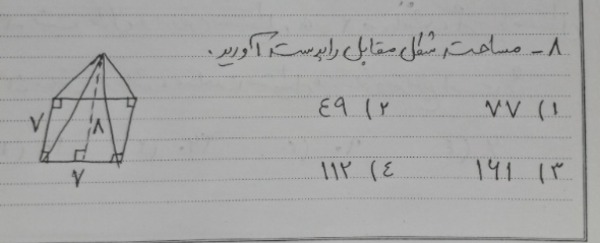 ۸ - مساحت شکل مقابل را بدست آورید.
۱) ۷۷ ۲) ۴۹
۷ ۸
۳) ۱۶۱ ۴) ۱۱۲
۷